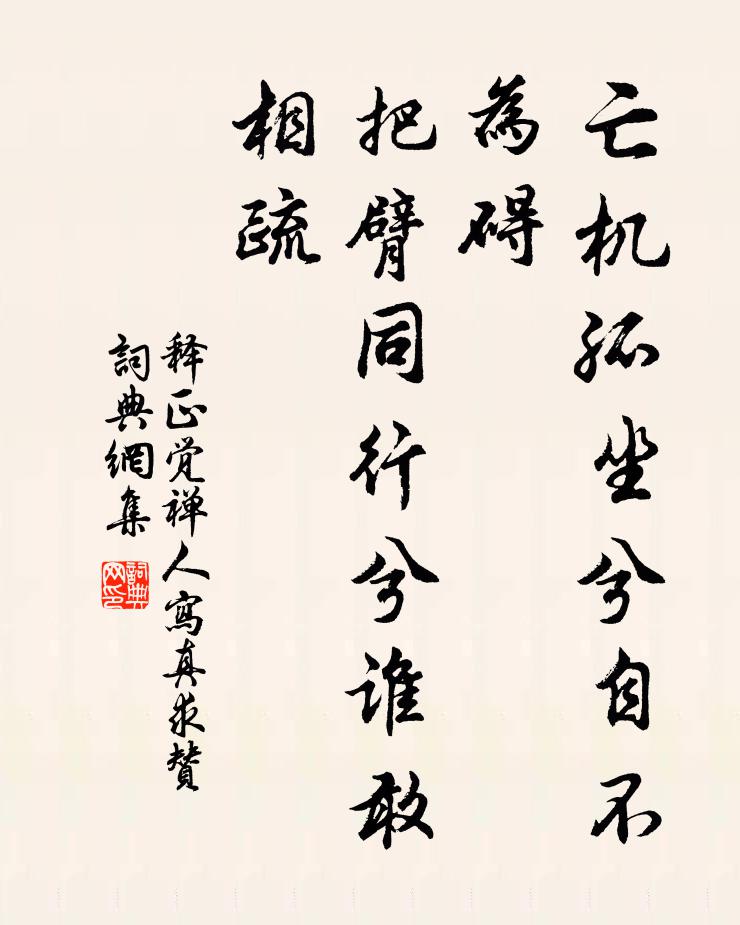 亡机孤坐兮自不
為碍
把臂同行兮谁敢
相疏
释正觉禅人寫真求贊
詞典網集
詞典网印